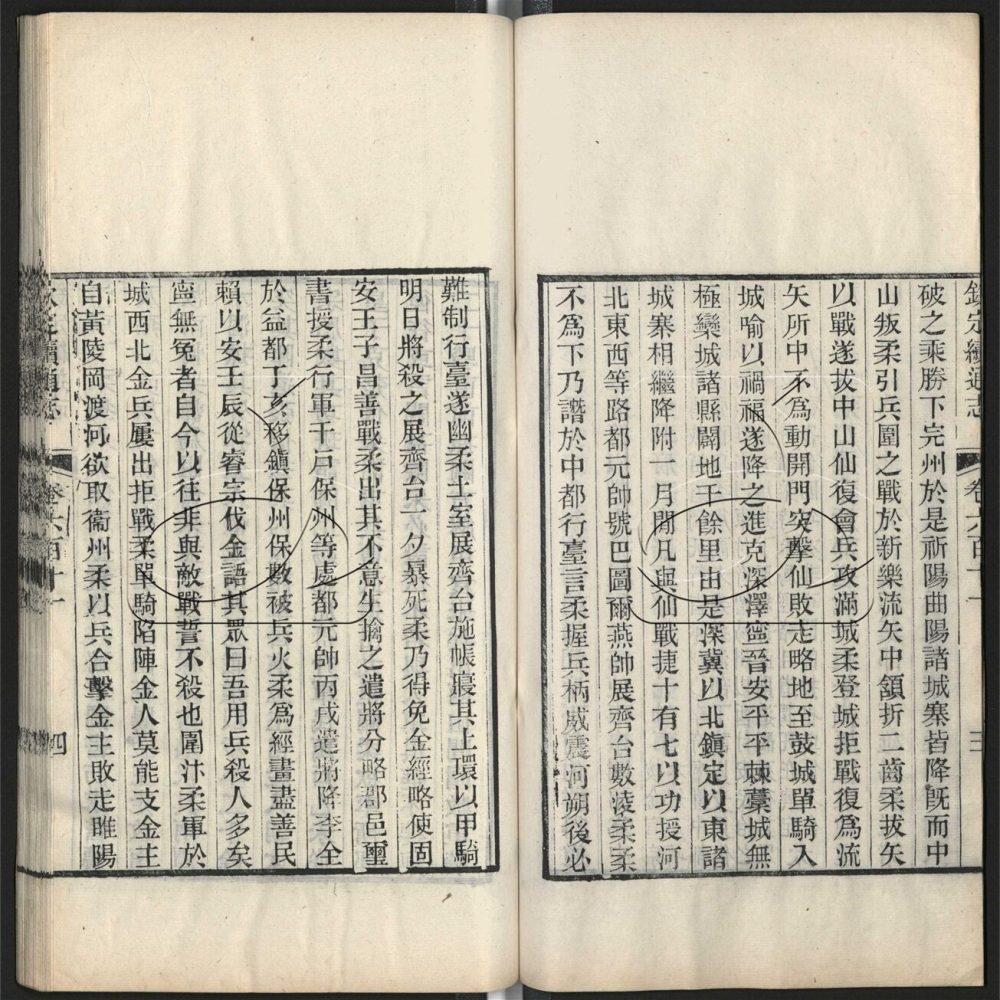 欽定續通志 卷六百十一 三
破之乘勝下完州於是祈陽曲陽諸城寨皆降旣而中
山叛柔引兵圍之戰於新樂流矢中頷折二齒柔拔矢
以戰遂拔中山仙復會兵攻滿城柔登城拒戰復爲流
矢所中不爲動開門突擊仙敗走略地至鼓城單騎入
城喻以禍福遂降之進克深澤寍晉安平平棘藁城無
極欒城諸縣闢地千餘里由是深冀以北鎮定以東諸
城寨相繼降附一月閒凡與仙戰捷十有七以功授河
北東西等路都元帥號巴圖爾燕帥展齊台數淩柔柔
不爲下乃譖於中都行臺言柔握兵柄威震河朔後必
難制行臺遂幽柔土室展齊台施帳寢其上環以甲騎
明日將殺之展齊台一夕暴死柔乃得免金經略使固
安王子昌善戰柔出其不意生擒之遣將分略郡邑璽
書授柔行軍千戸保州等處都元帥丙戌遣將降李全
於益都丁亥移鎮保州保數被兵火柔爲經畫盡善民
賴以安壬辰從睿宗伐金語其眾曰吾用兵殺人多矣
寍無冤者自今以往非與敵戰誓不殺也圍汴柔軍於
城西北金兵屢出拒戰柔單騎陷陣金人莫能支金主
自黃陵岡渡河欲取衞州柔以兵合擊金主敗走睢陽
欽定續通志 卷六百十一 四